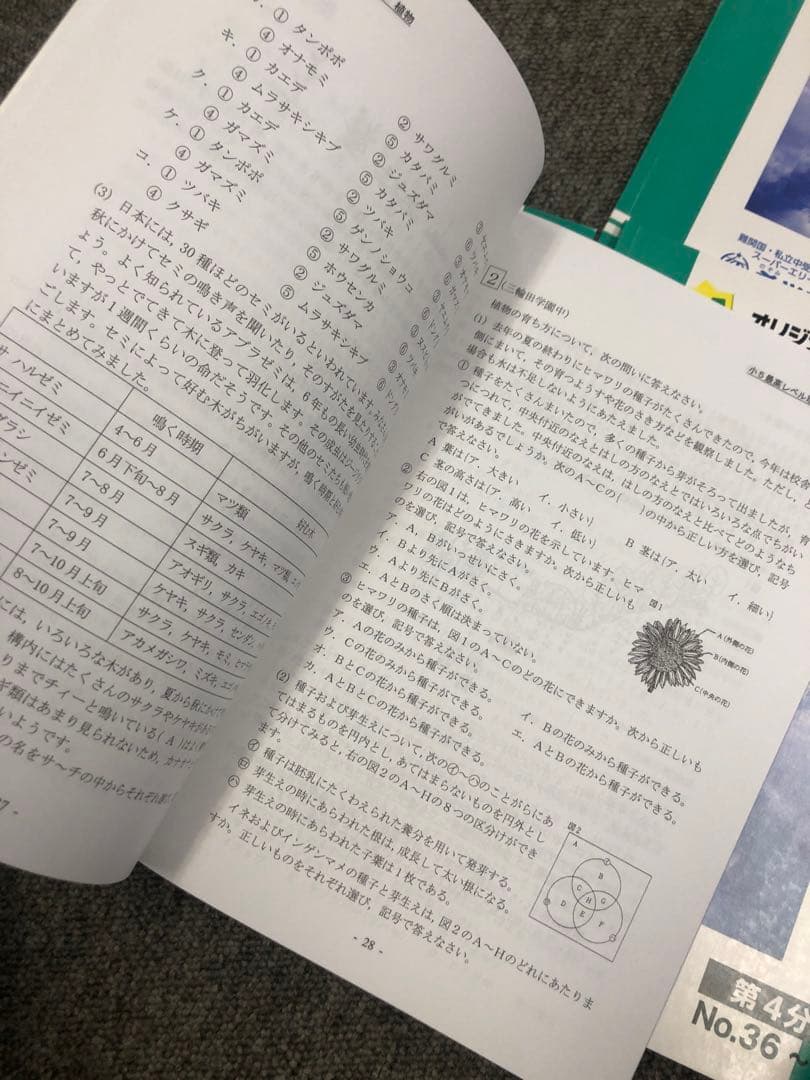 植物
① タンポポ
④ オナモミ
② サワグルミ
キ. ① カエデ
④ ムラサキシキブ
⑤ カタバミ
ク. ① カエデ
④ ガマズミ
② ジュズダマ
⑤ カタバミ
ケ. ① タンポポ
④ ガマズミ
② ツバキ
⑤ ゲンノショウコ
コ. ① ツバキ
④ クサギ
② サワグルミ
⑤ ホウセンカ
② ジュズダマ
⑤ ムラサキシキブ
(3) 日本には,30種ほどのセミがいるといわれています。
秋にかけてセミの鳴き声を聞いたり,そのすがたを見たり
ょう。よく知られているアブラゼミは,6年もの長い
て,やっとでてきて木に登って羽化します。その成虫は
いますが1週間くらいの命だそうです。その他のセミたちも
ごします。セミによって好む木がちがいますが,鳴く時期と
にまとめてみました。
鳴く時期
ハルゼミ 4〜6月 マツ類
ニイニイゼミ 6月下旬〜8月 サクラ,ケヤキ,マツ類
7〜8月 スギ類,カキ
7〜9月 アオギリ,サクラ,エゴ
7〜9月 ケヤキ,サクラ,センダン
7〜10月上旬 サクラ,ケヤキ,モミ
8〜10月上旬 アカメガシワ,ミズキ,エゴ
には,いろいろな木があり,夏から秋にかけて
構内にはたくさんのサクラやケヤキが
りまでチィーと鳴いている(A)は
ギ類はあまり見られないため,カナカナ
いようです。
の名をサ〜チの中からそれぞれ
2 (三輪田学園中)
植物の育ち方について,次の問いに答えなさい。
(1) 去年の夏の終わりにヒマワリの種子がたくさんできたので,今年は校舎
側にまいて,その育つようすや花のさき方などを観察しました。ただし,
場合も水は不足しないようにあたえました。
① 種子をたくさんまいたので,多くの種子から芽がそろって出ましたが,育
つにつれて,中央付近のなえとはしの方のなえとではいろいろな点でちがい
ができてきました。中央付近のなえは,はしの方のなえと比べてどのようなち
がいがあるでしょうか。次のA〜Cの( )の中から正しい方を選び,記号
で答えなさい。
A 葉は(ア.大きい イ.小さい)
B 茎は(ア.太い イ.細い)
C 茎の高さは(ア.高い イ.低い)
② 右の図1は,ヒマワリの花を示しています。ヒマ
ワリの花はどのようにさきますか。次から正しいも
のを選び,記号で答えなさい。
ア.A,Bがいっせいにさく。
イ.Bより先にAがさく。
ウ.Aより先にBがさく。
エ.AとBのさく順は決まっていない。
図1
A(外側の花)
B(内側の花)
C(中央の花)
③ ヒマワリの種子は,図1のA〜Cのどの花にできますか。次から正しいも
のを選び,記号で答えなさい。
ア.Aの花のみから種子ができる。
イ.Bの花のみから種子ができる。
ウ.Cの花のみから種子ができる。
エ.AとBの花から種子ができる。
オ.BとCの花から種子ができる。
カ.AとBとCの花から種子ができる。
(2) 種子および芽生えについて,次の㋑〜㋩のことがらにあ
てはまるものを円内とし,あてはまらないものを円外とし
て分けてみると,右の図2のA〜Hの8つの区分けができ
ます。
㋑ 種子は胚乳にたくわえられた養分を用いて発芽する。
㋺ 芽生えの時にあらわれた根は,成長して太い根になる。
㋩ 芽生えの時にあらわれた子葉は1枚である。
イネおよびインゲンマメの種子と芽生えは,図2のA〜Hのどれにあたりま
すか。正しいものをそれぞれ選び,記号で答えなさい。
図2
A
B
C G
H
D E F
- 28 -
難関国・私立中学
スーパーエリ
オリジ
小5最高レベル
第4分
No.36 〜